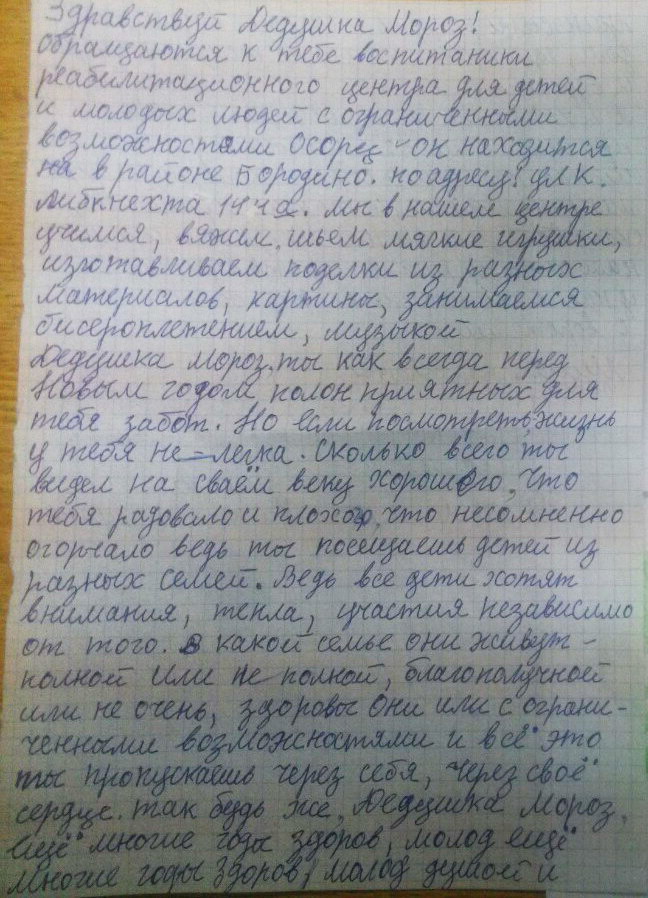 Здравствуй Дедушка Мороз!
обращаются к тебе воспитаники
реабилитационного центра для детей
и молодых людей с ограниченными
возможностями Осорец - он находится
на в районе Бородино. по адресу: ул К.
Либкнехта 144а. Мы в нашем центре
учимся, вяжем, шьем мягкие игрушки,
изготавливаем поделки из разных
материалов, картины, занимаемся
бисероплетением, музыкой
Дедушка Мороз. ты как всегда перед
Новым годом полон приятных для
тебя забот. Но если посмотреть, жизнь
у тебя не-легка. Сколько всего ты
видел на сваём веку хорошого, что
тебя радовало и плохого, что несомненно
огорчало ведь ты посещаешь детей из
разных семей. Ведь все дети хотят
внимания, тепла, участия независимо
от того. в какой семье они живут -
полной или не полной, благополучной
или не очень, здоровы они или с ограни-
ченными возможностями и всё это
ты пропускаешь через себя, через своё
сердце. так будь же, Дедушка Мороз,
ещё многие годы здоров, молод ещё
многие годы здоров, молод душой и